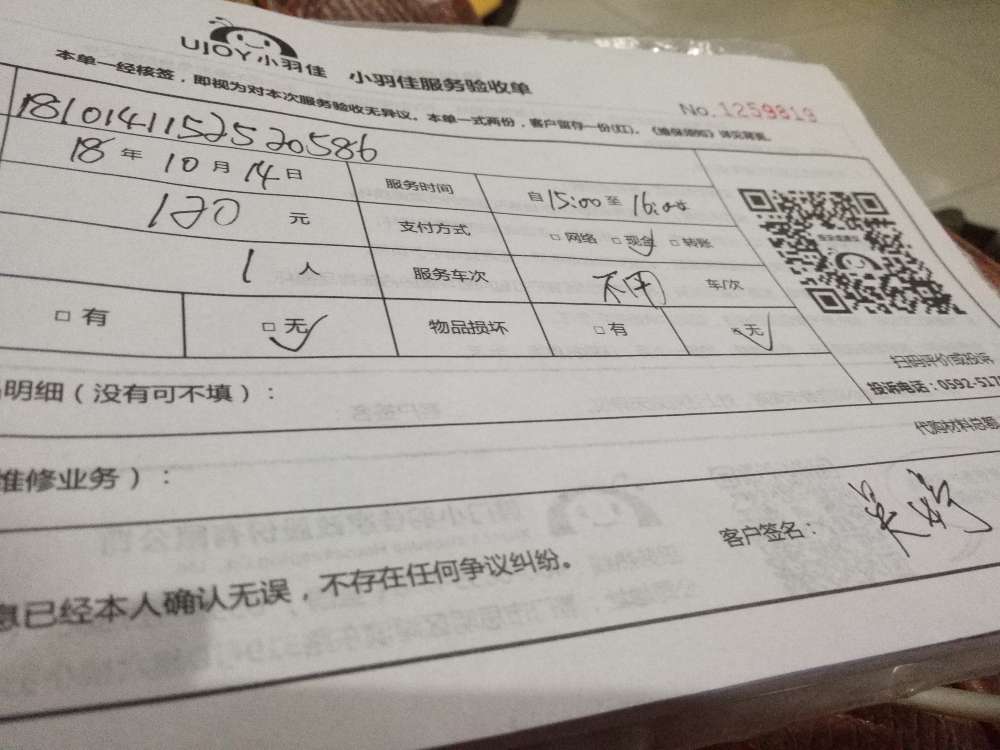 UJOY小羽佳 小羽佳服务验收单
本单一经核签，即视为对本次服务验收无异议。本单一式两份，客户留存一份(红)。《维保须知》详见背面。
No.1259819
1810141152520586
18年10月14日 服务时间 自15:00至16:00
120元 支付方式 □网络 □现金 □转账
1人 服务车次 不用 车/次
□有 □无 物品损坏 □有 无
扫码评价或投诉
投诉电话：0592-517
明细（没有可不填）：
代购材料总额
维修业务）：
客户签名：
息已经本人确认无误，不存在任何争议纠纷。